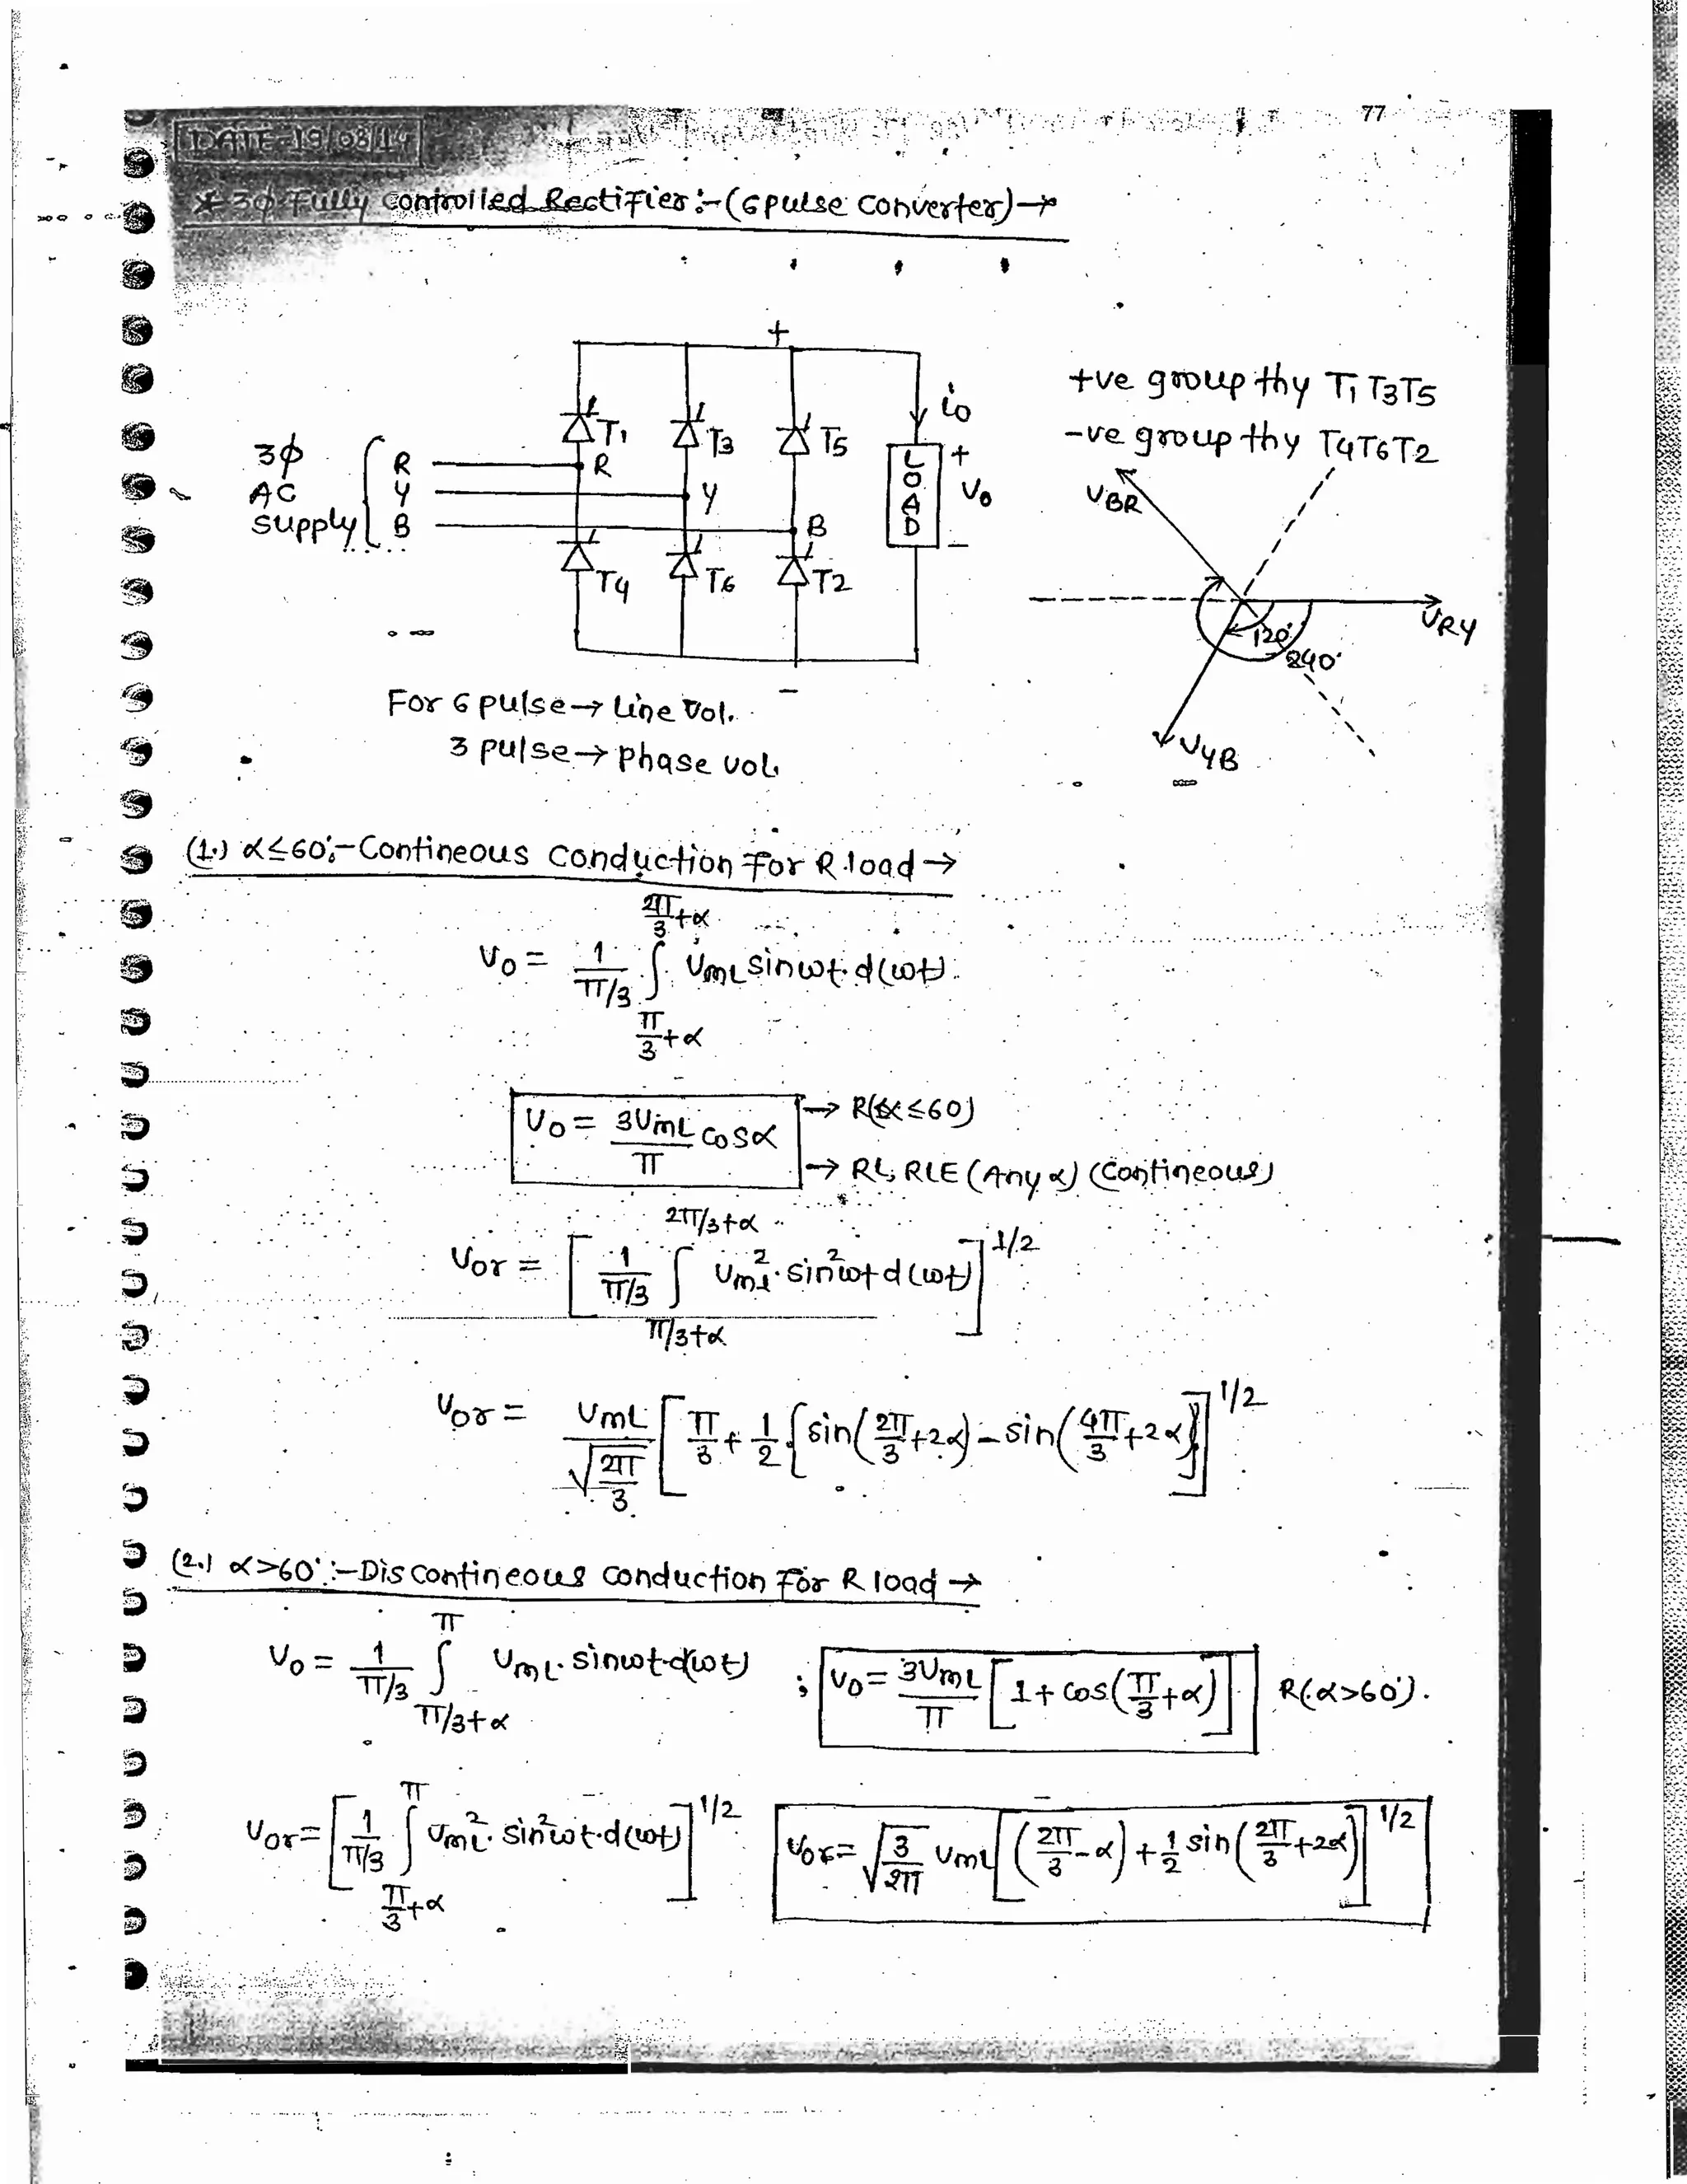 77
DATE-19/08/14
* 3ϕ Fully controlled Rectifier :- (6 pulse converter) →
+
i₀
T₁ T3 T5
3ϕ AC supply
R R
Y Y
B B
LOAD
+ V₀ −
T4 T6 T2
−
+ve group thy T₁ T3 T5
-ve group thy T4 T6 T2
VBR
VRY
120°
240°
VYB
For 6 pulse → Line Vol.
3 pulse → phase vol.
(1.) α≤60°:- Contineous conduction for R load →
V₀ = 1/(π/3) ∫_{π/3+α}^{2π/3+α} VmL sinωt. d(ωt)
V₀ = 3VmL/π cosα → R(α≤60)
→ RL, RLE (Any α) (Contineous)
Vor = [ 1/(π/3) ∫_{π/3+α}^{2π/3+α} VmL². sin²ωt d(ωt) ]^{1/2}
Vor = VmL/√(2π/3) [ π/3 + 1/2 { sin(2π/3+2α) - sin(4π/3+2α) } ]^{1/2}
(2.) α>60° :- Discontineous conduction for R load →
V₀ = 1/(π/3) ∫_{π/3+α}^{π} VmL. sinωt.d(ωt) ; V₀ = 3VmL/π [ 1+cos(π/3+α) ] R(α>60°).
Vor = [ 1/(π/3) ∫_{π/3+α}^{π} VmL². sin²ωt.d(ωt) ]^{1/2} Vor = √(3/2π) VmL [ (2π/3-α) + 1/2 sin(2π/3+2α) ]^{1/2}